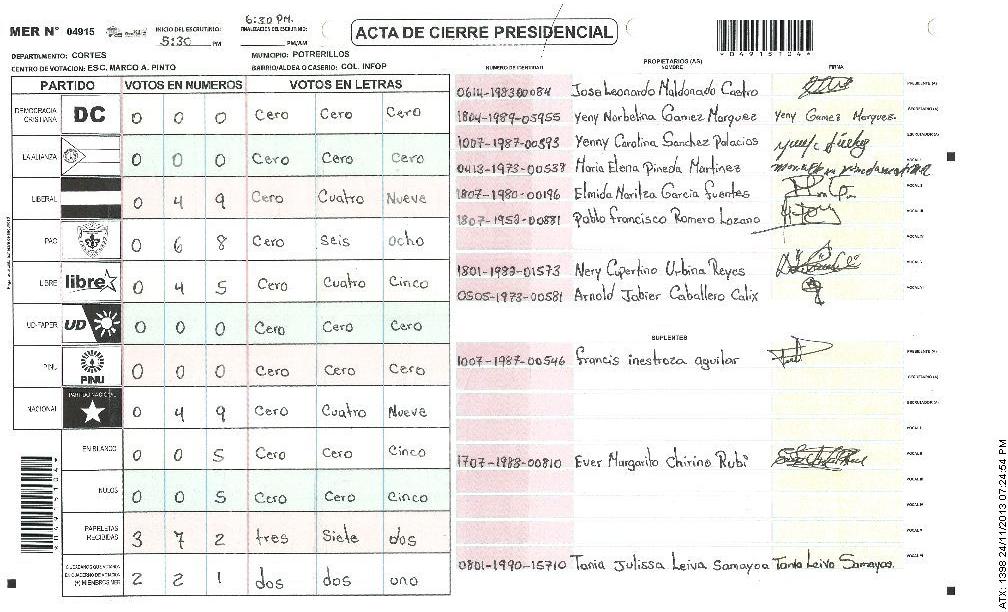 MER N° 04915 INICIO DEL ESCRUTINIO: 5:30 PM
6:30 PM. FINALIZACION DEL ESCRUTINIO: PM/AM
ACTA DE CIERRE PRESIDENCIAL
*04915104*
DEPARTAMENTO: CORTES MUNICIPIO: POTRERILLOS
CENTRO DE VOTACION: ESC. MARCO A. PINTO BARRIO/ALDEA O CASERIO: COL. INFOP
PARTIDO VOTOS EN NUMEROS VOTOS EN LETRAS
DEMOCRACIA CRISTIANA DC 0 0 0 Cero Cero Cero
LA ALIANZA 0 0 0 Cero Cero Cero
LIBERAL 0 4 9 Cero Cuatro Nueve
PAC 0 6 8 Cero Seis ocho
LIBRE libre 0 4 5 Cero Cuatro Cinco
UD-FAPER UD 0 0 0 Cero Cero Cero
PINU PINU 0 0 0 Cero Cero Cero
NACIONAL PARTIDO NACIONAL 0 4 9 Cero Cuatro Nueve
EN BLANCO 0 0 5 Cero Cero Cinco
NULOS 0 0 5 Cero Cero Cinco
PAPELETAS RECIBIDAS 3 7 2 tres Siete dos
CIUDADANOS QUE VOTARON EN CUADERNO DE VOTACION (+) MIEMBROS MER 2 2 1 dos dos uno
PROPIETARIOS (AS)
NUMERO DE IDENTIDAD NOMBRE FIRMA
0614-1983-00084 Jose Leonardo Maldonado Castro PRESIDENTE (A)
1804-1989-05955 Yeny Norbelina Gamez Marquez Yeny Gamez Marquez. SECRETARIO (A)
1007-1987-00593 Yenny Carolina Sanchez Palacios ESCRUTADOR (A)
0413-1973-00538 Maria Elena Pineda Martinez VOCAL I
1807-1980-00196 Elmida Maritza Garcia fuentes VOCAL II
1807-1953-00881 Pablo Francisco Romero Lozano VOCAL III
VOCAL IV
1801-1983-01573 Nery Cupertino Urbina Reyes VOCAL V
0505-1973-00581 Arnold Jabier Caballero Calix VOCAL VI
SUPLENTES
1007-1987-00546 francis inestroza aguilar PRESIDENTE (A)
SECRETARIO (A)
ESCRUTADOR (A)
VOCAL I
1707-1983-00810 Ever Margarito Chirino Rubi VOCAL II
VOCAL III
VOCAL IV
VOCAL V
0801-1990-15710 Tania Julissa Leiva Samayoa Tania Leiva Samayoa. VOCAL VI
ATX: 1398 24/11/2013 07:24:54 PM